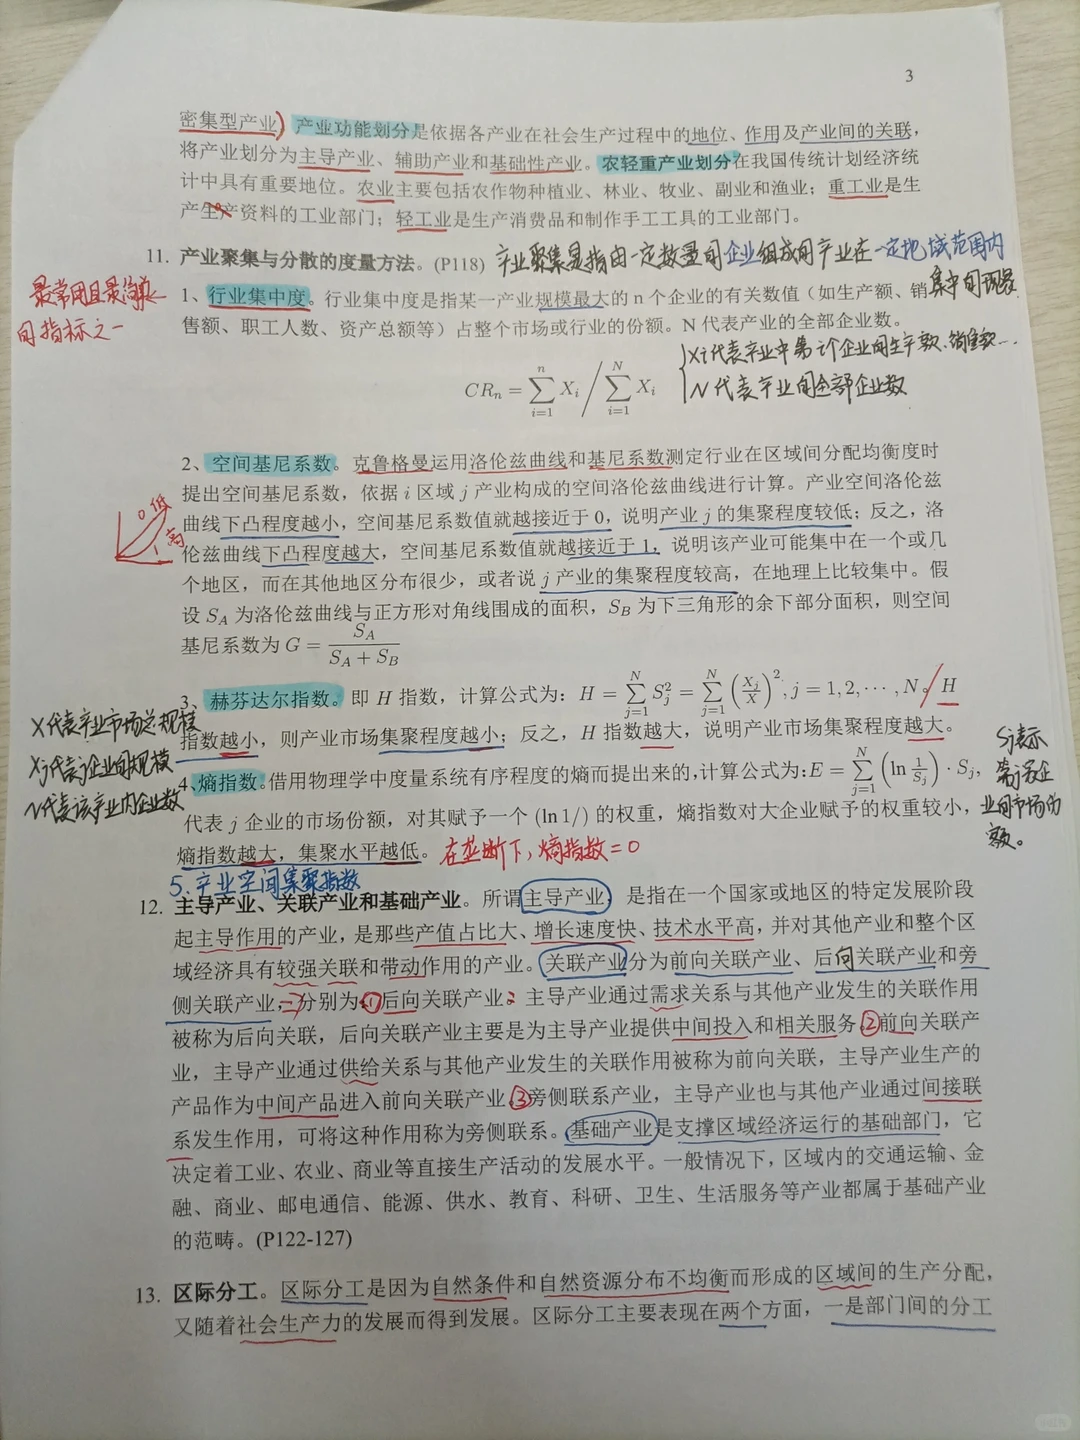 3
密集型产业) 产业功能划分是依据各产业在社会生产过程中的地位、作用及产业间的关联，
将产业划分为主导产业、辅助产业和基础性产业。农轻重产业划分在我国传统计划经济统
计中具有重要地位。农业主要包括农作物种植业、林业、牧业、副业和渔业；重工业是生
产生产资料的工业部门；轻工业是生产消费品和制作手工工具的工业部门。
11. 产业聚集与分散的度量方法。(P118) 产业聚集是指由一定数量的企业组成的产业在一定地域范围内
集中的现象
最常用且最简单
的指标之一
1、行业集中度。行业集中度是指某一产业规模最大的 n 个企业的有关数值（如生产额、销
售额、职工人数、资产总额等）占整个市场或行业的份额。N 代表产业的全部企业数。
Xi代表产业中第i个企业的生产额、销售额…
N代表产业的全部企业数
CRₙ = ∑ⁿᵢ₌₁ Xᵢ / ∑ᴺᵢ₌₁ Xᵢ
2、空间基尼系数。克鲁格曼运用洛伦兹曲线和基尼系数测定行业在区域间分配均衡度时
提出空间基尼系数，依据 i 区域 j 产业构成的空间洛伦兹曲线进行计算。产业空间洛伦兹
曲线下凸程度越小，空间基尼系数值就越接近于 0，说明产业 j 的集聚程度较低；反之，洛
伦兹曲线下凸程度越大，空间基尼系数值就越接近于 1，说明该产业可能集中在一个或几
个地区，而在其他地区分布很少，或者说 j 产业的集聚程度较高，在地理上比较集中。假
设 S_A 为洛伦兹曲线与正方形对角线围成的面积，S_B 为下三角形的余下部分面积，则空间
基尼系数为 G = S_A / (S_A + S_B)
0 低
1 高
3、赫芬达尔指数。即 H 指数，计算公式为：H = ∑ᴺⱼ₌₁ Sⱼ² = ∑ᴺⱼ₌₁ (Xⱼ/X)², j = 1, 2, ⋯ , N。/ H
指数越小，则产业市场集聚程度越小；反之，H 指数越大，说明产业市场集聚程度越大。
X代表产业市场总规模
Xj代表j企业的规模
N代表该产业内企业数
4、熵指数。借用物理学中度量系统有序程度的熵而提出来的，计算公式为：E = ∑ᴺⱼ₌₁ (ln 1/Sⱼ) · Sⱼ，
代表 j 企业的市场份额，对其赋予一个 (ln 1/) 的权重，熵指数对大企业赋予的权重较小，
熵指数越大，集聚水平越低。在垄断下，熵指数=0
Sj表示
第j家企
业的市场份
额。
5.产业空间集聚指数
12. 主导产业、关联产业和基础产业。所谓主导产业，是指在一个国家或地区的特定发展阶段
起主导作用的产业，是那些产值占比大、增长速度快、技术水平高，并对其他产业和整个区
域经济具有较强关联和带动作用的产业。关联产业分为前向关联产业、后向关联产业和旁
侧关联产业，分别为①后向关联产业：主导产业通过需求关系与其他产业发生的关联作用
被称为后向关联，后向关联产业主要是为主导产业提供中间投入和相关服务②前向关联产
业，主导产业通过供给关系与其他产业发生的关联作用被称为前向关联，主导产业生产的
产品作为中间产品进入前向关联产业③旁侧联系产业，主导产业也与其他产业通过间接联
系发生作用，可将这种作用称为旁侧联系。基础产业是支撑区域经济运行的基础部门，它
决定着工业、农业、商业等直接生产活动的发展水平。一般情况下，区域内的交通运输、金
融、商业、邮电通信、能源、供水、教育、科研、卫生、生活服务等产业都属于基础产业
的范畴。(P122-127)
13. 区际分工。区际分工是因为自然条件和自然资源分布不均衡而形成的区域间的生产分配，
又随着社会生产力的发展而得到发展。区际分工主要表现在两个方面，一是部门间的分工